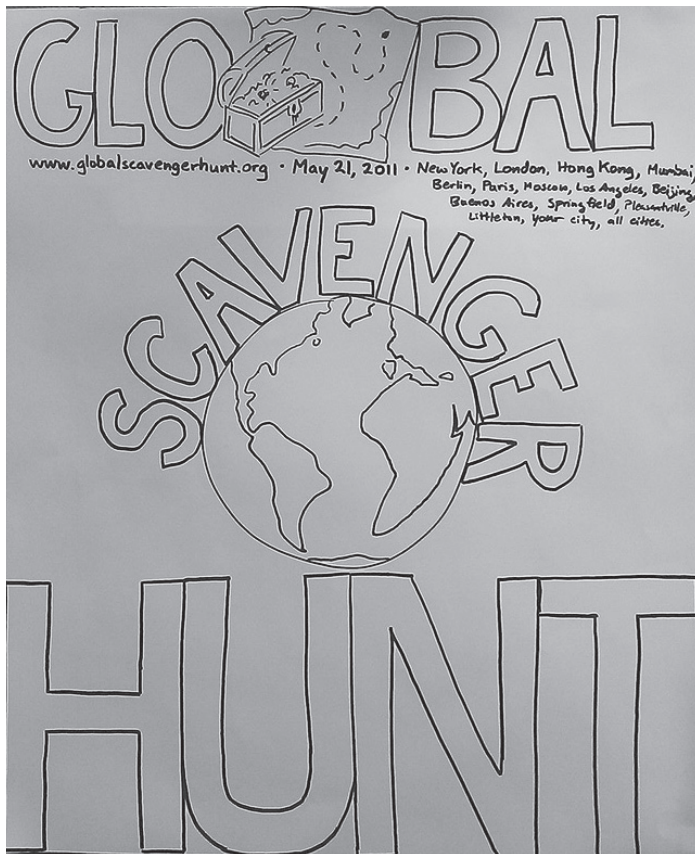 GLOBAL
www.globalscavengerhunt.org · May 21, 2011 · New York, London, Hong Kong, Mumbai,
Berlin, Paris, Moscow, Los Angeles, Beijing,
Buenos Aires, Springfield, Pleasantville,
Littleton, your city, all cities.
SCAVENGER
HUNT